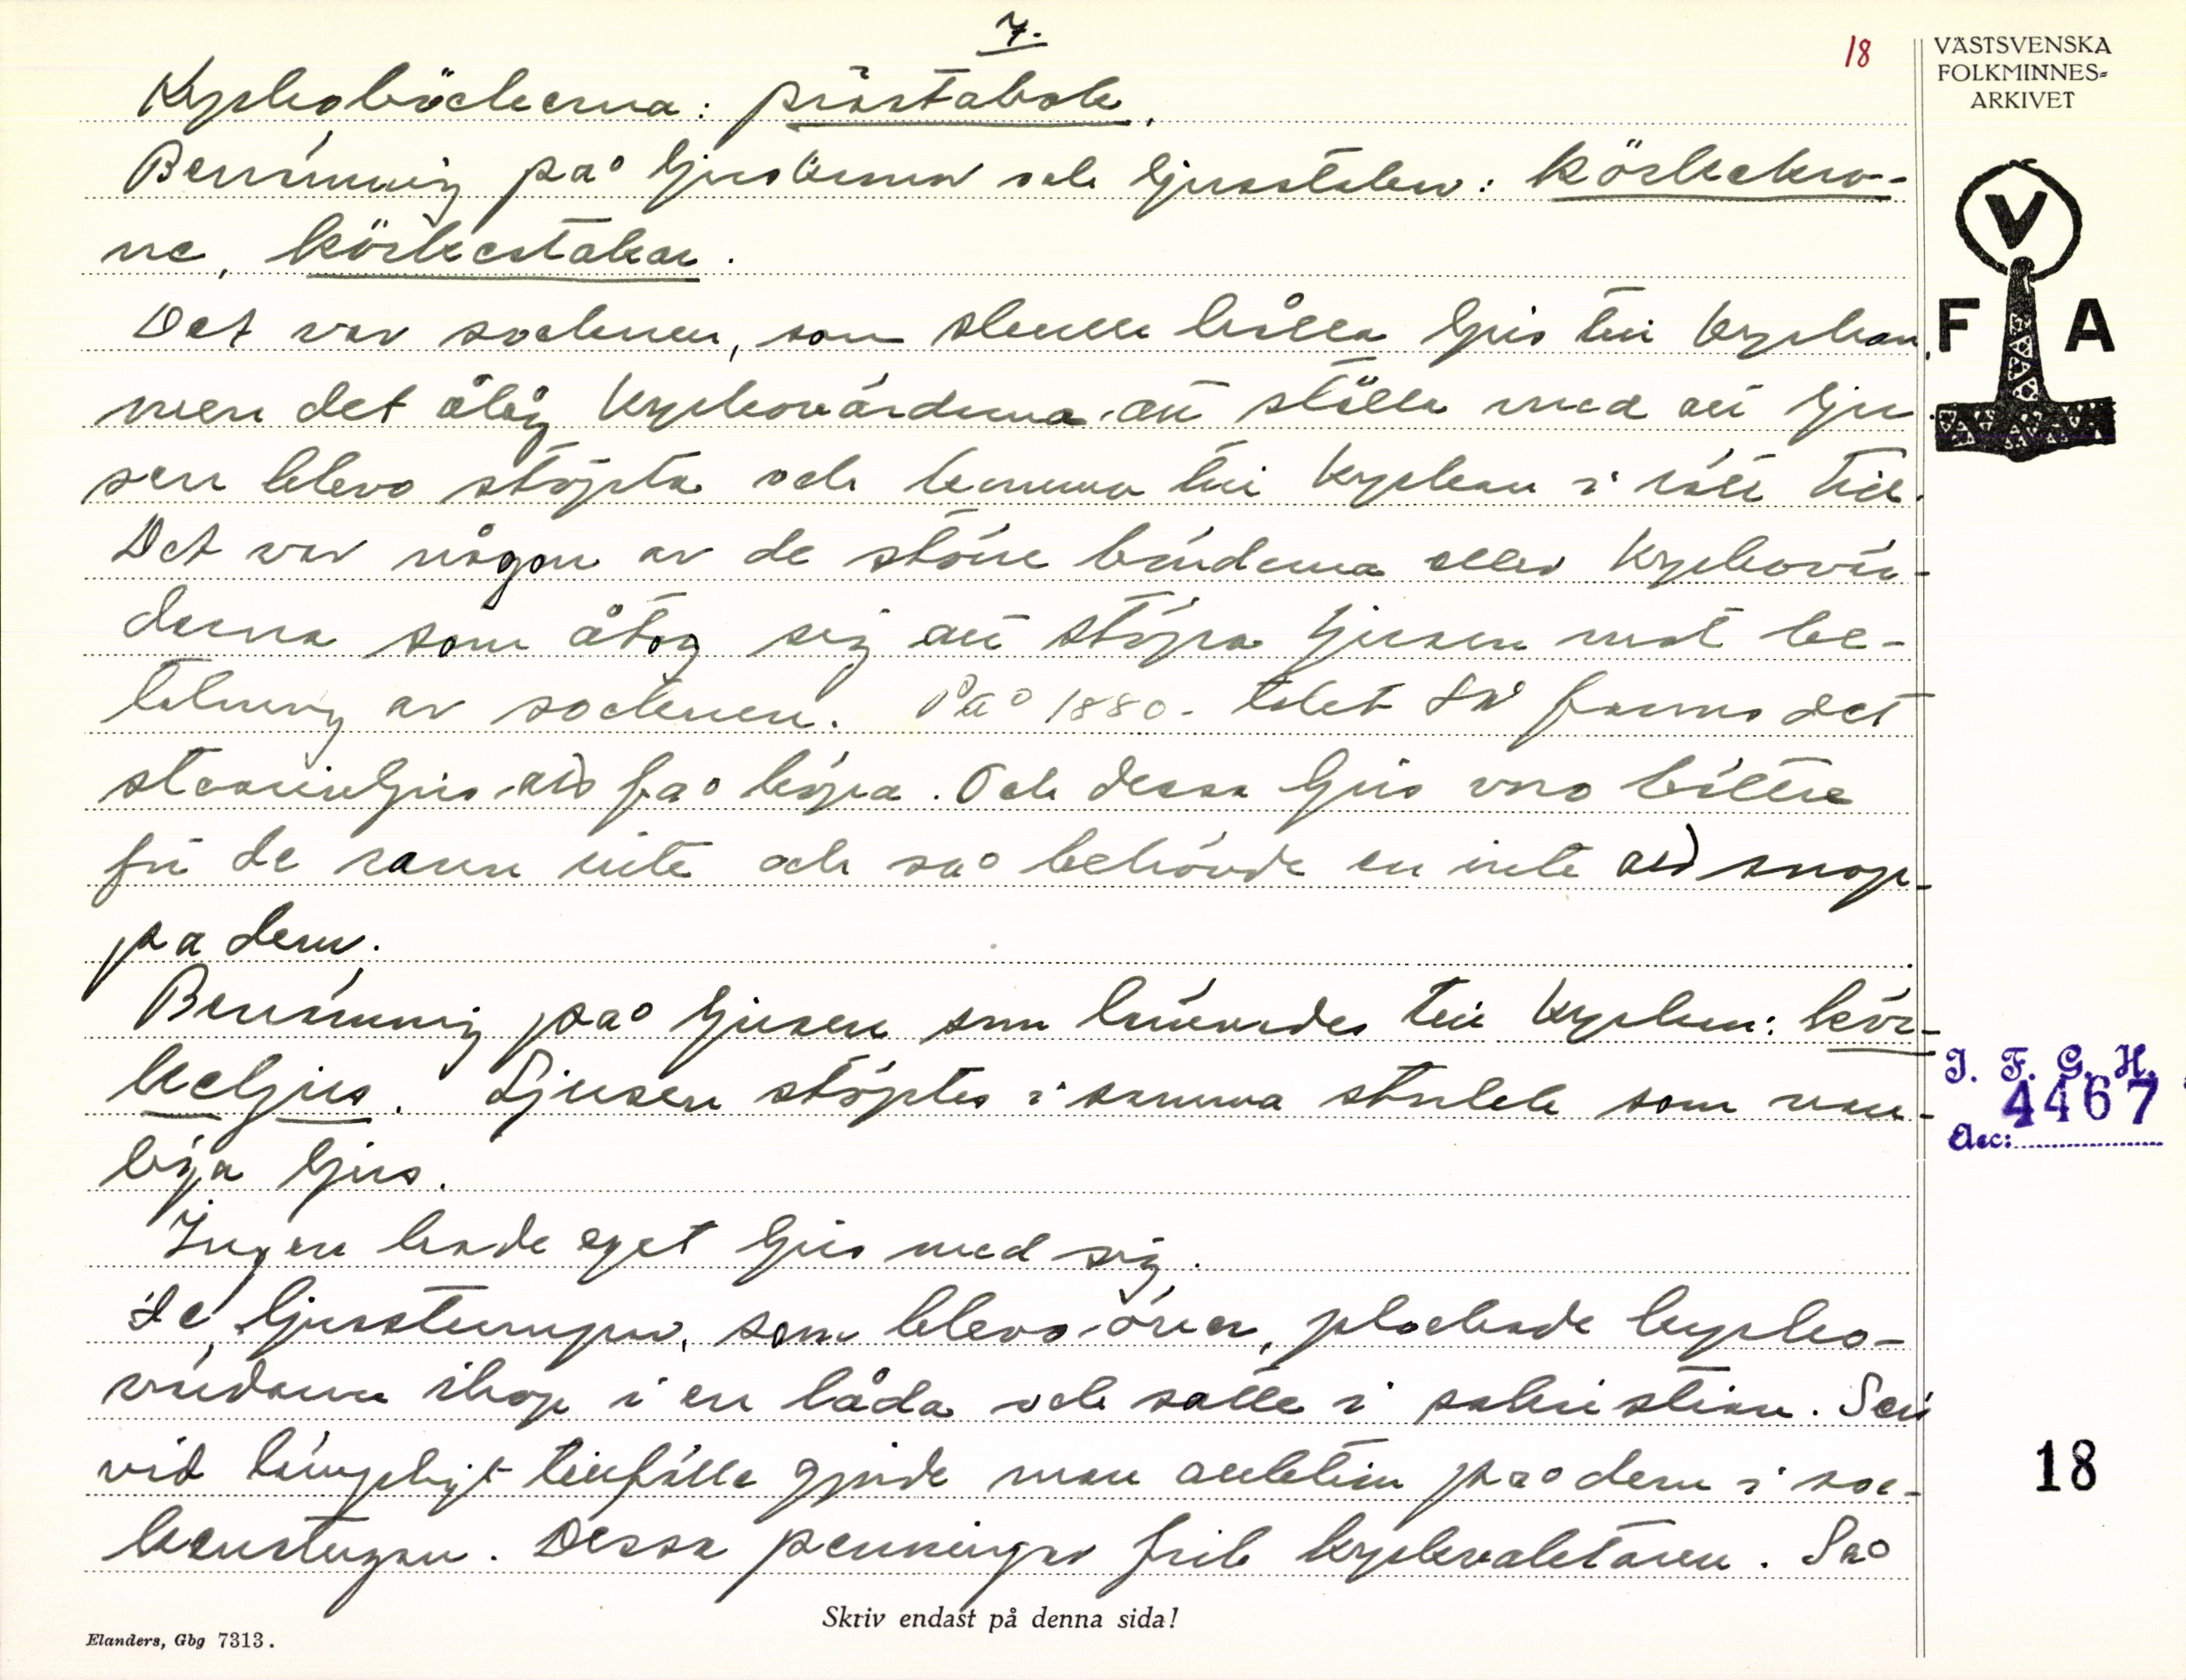 7.
18
VÄSTSVENSKA
FOLKMINNES-
ARKIVET
V
F A
Kyrkoböckerna: prästabok.
Benämning på ljuskronor och ljusstakar: körkekro-
ne, körkestakar.
Det var socknen, som skulle hålla ljus till kyrkan,
men det ålåg kyrkovärdarna att ställa med att lju-
sen blevo stöpta och komma till kyrkan i rätt tid.
Det var någon av de större bönderna eller kyrkovär-
darna som åtog sig att stöpa ljusen mot be-
talning av socknen. På 1880-talet så fanns det
stearinljus att få köpa. Och dessa ljus voro bättre
för de rann inte och så behövde en inte att snop-
pa dem.
Benämning på ljusen som användes till kyrkan: kör-
keljus. Ljusen stöptes i samma storlek som van-
liga ljus.
Ingen hade eget ljus med sig.
De ljusstumpar, som blevo över, plockade kyrko-
värdarna ihop i en låda och satte i sakristian. Sen
vid lämpligt tillfälle gjorde man auktion på dem i soc-
kenstugan. Dessa penningar fick kyrkvaktaren. Så
I. F. G. H.
4467
Acc:
18
Skriv endast på denna sida!
Elanders, Gbg 7313.